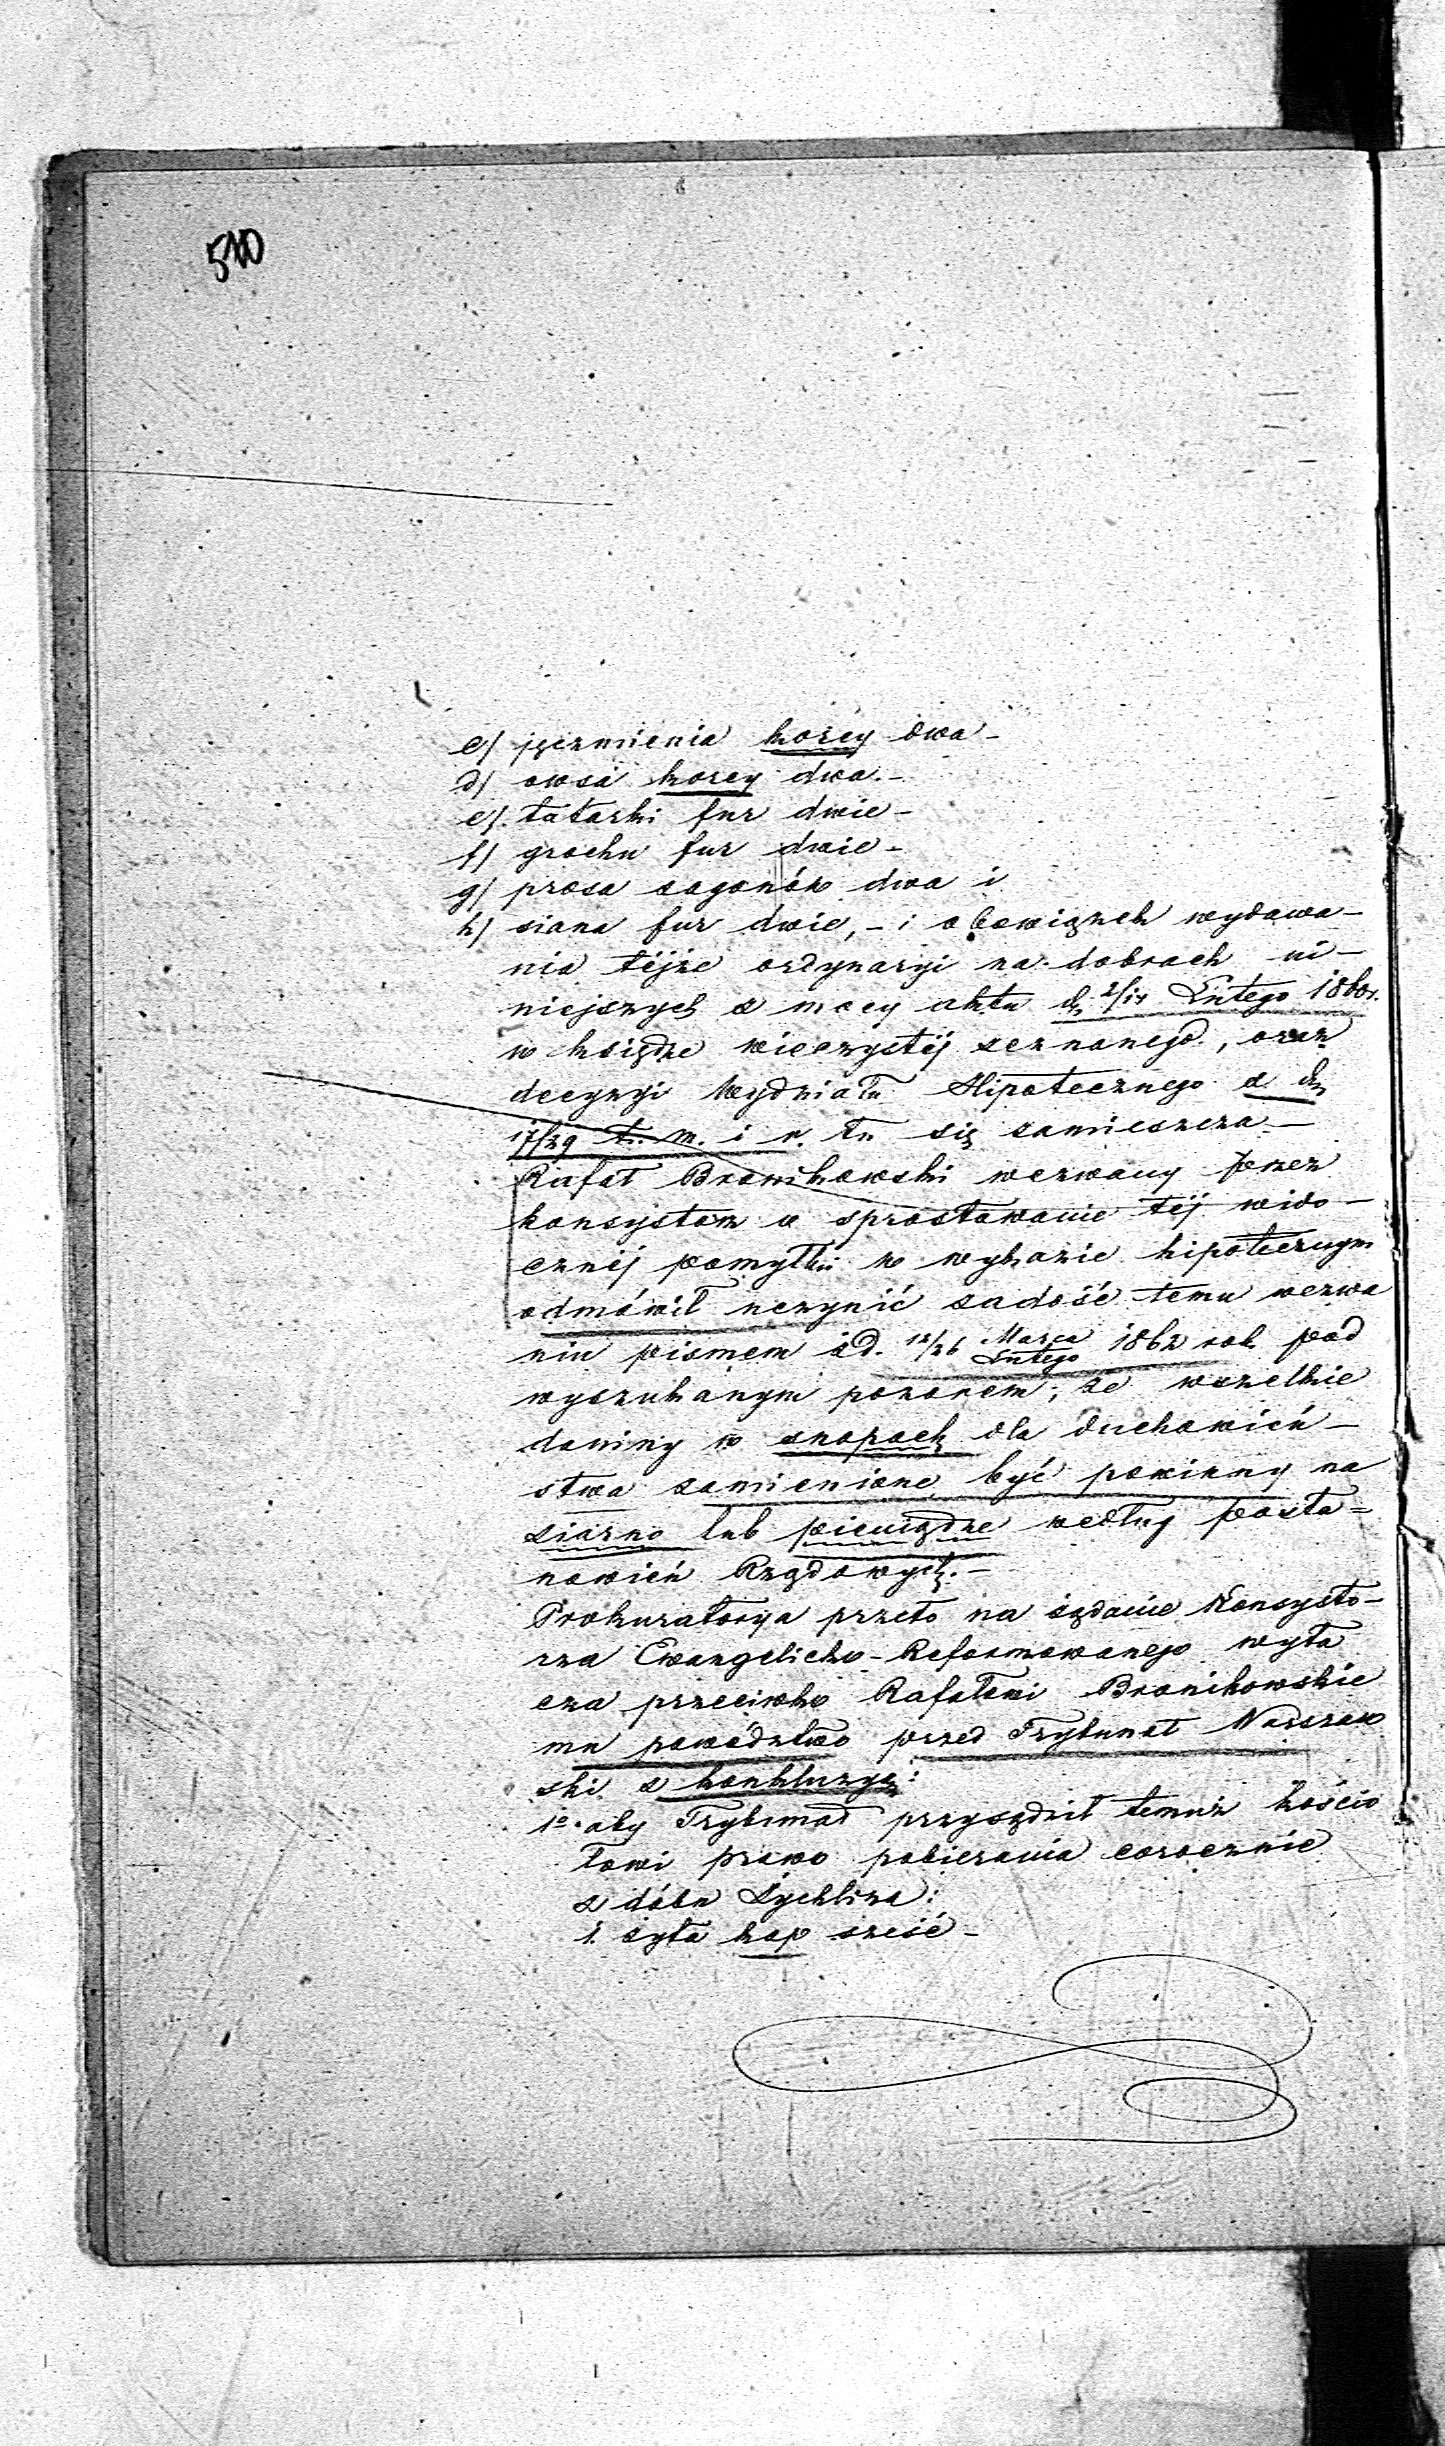 510
c/ jęczmienia korcy dwa –
d/ owsa korcy dwa. –
e/. tatarki fur dwie –
f/ grochu fur dwie –
g/ prosa zagonów dwa i
h/ siana fur dwie, – i obowiązek wydawa–
nia téjże ordynaryi na dobrach ni–
niejszych z mocy aktu d. 2/14 Lutego 1860 r.
w księdze wieczystéj zeznanego, oraz
decyzyi Wydziału Hipotecznego z d.
17/29 t. m. i r. tu się zamieszcza –
Rafał Bronikowski wezwany przez
konsystorz o sprostowanie téj wido–
cznéj pomyłki w wykazie hipotecznym
odmówił uczynić zadość temu wezwa
niu pismem z d. 12/26 Marca Lutego 1862 rok pod
wyszukanym pozorem; że wszelkie
daniny w snopach dla duchowień–
stwa zamienione być powinny na
ziarno lub pieniądze według posta=
nowień Rządowych. –
Prokuratorya przeto na żądanie Konsysto–
rza Ewangelicko-Reformowanego wyta
cza przeciwko Rafałowi Bronikowskie
mu powództwo przed Trybunał Warszaw
ski z konkluzyą:
1o. aby Trybunał przysądził temuż kościo
łowi prawo pobierania corocznie
z dóbr Żychlina:
1. żyta kop sześć –